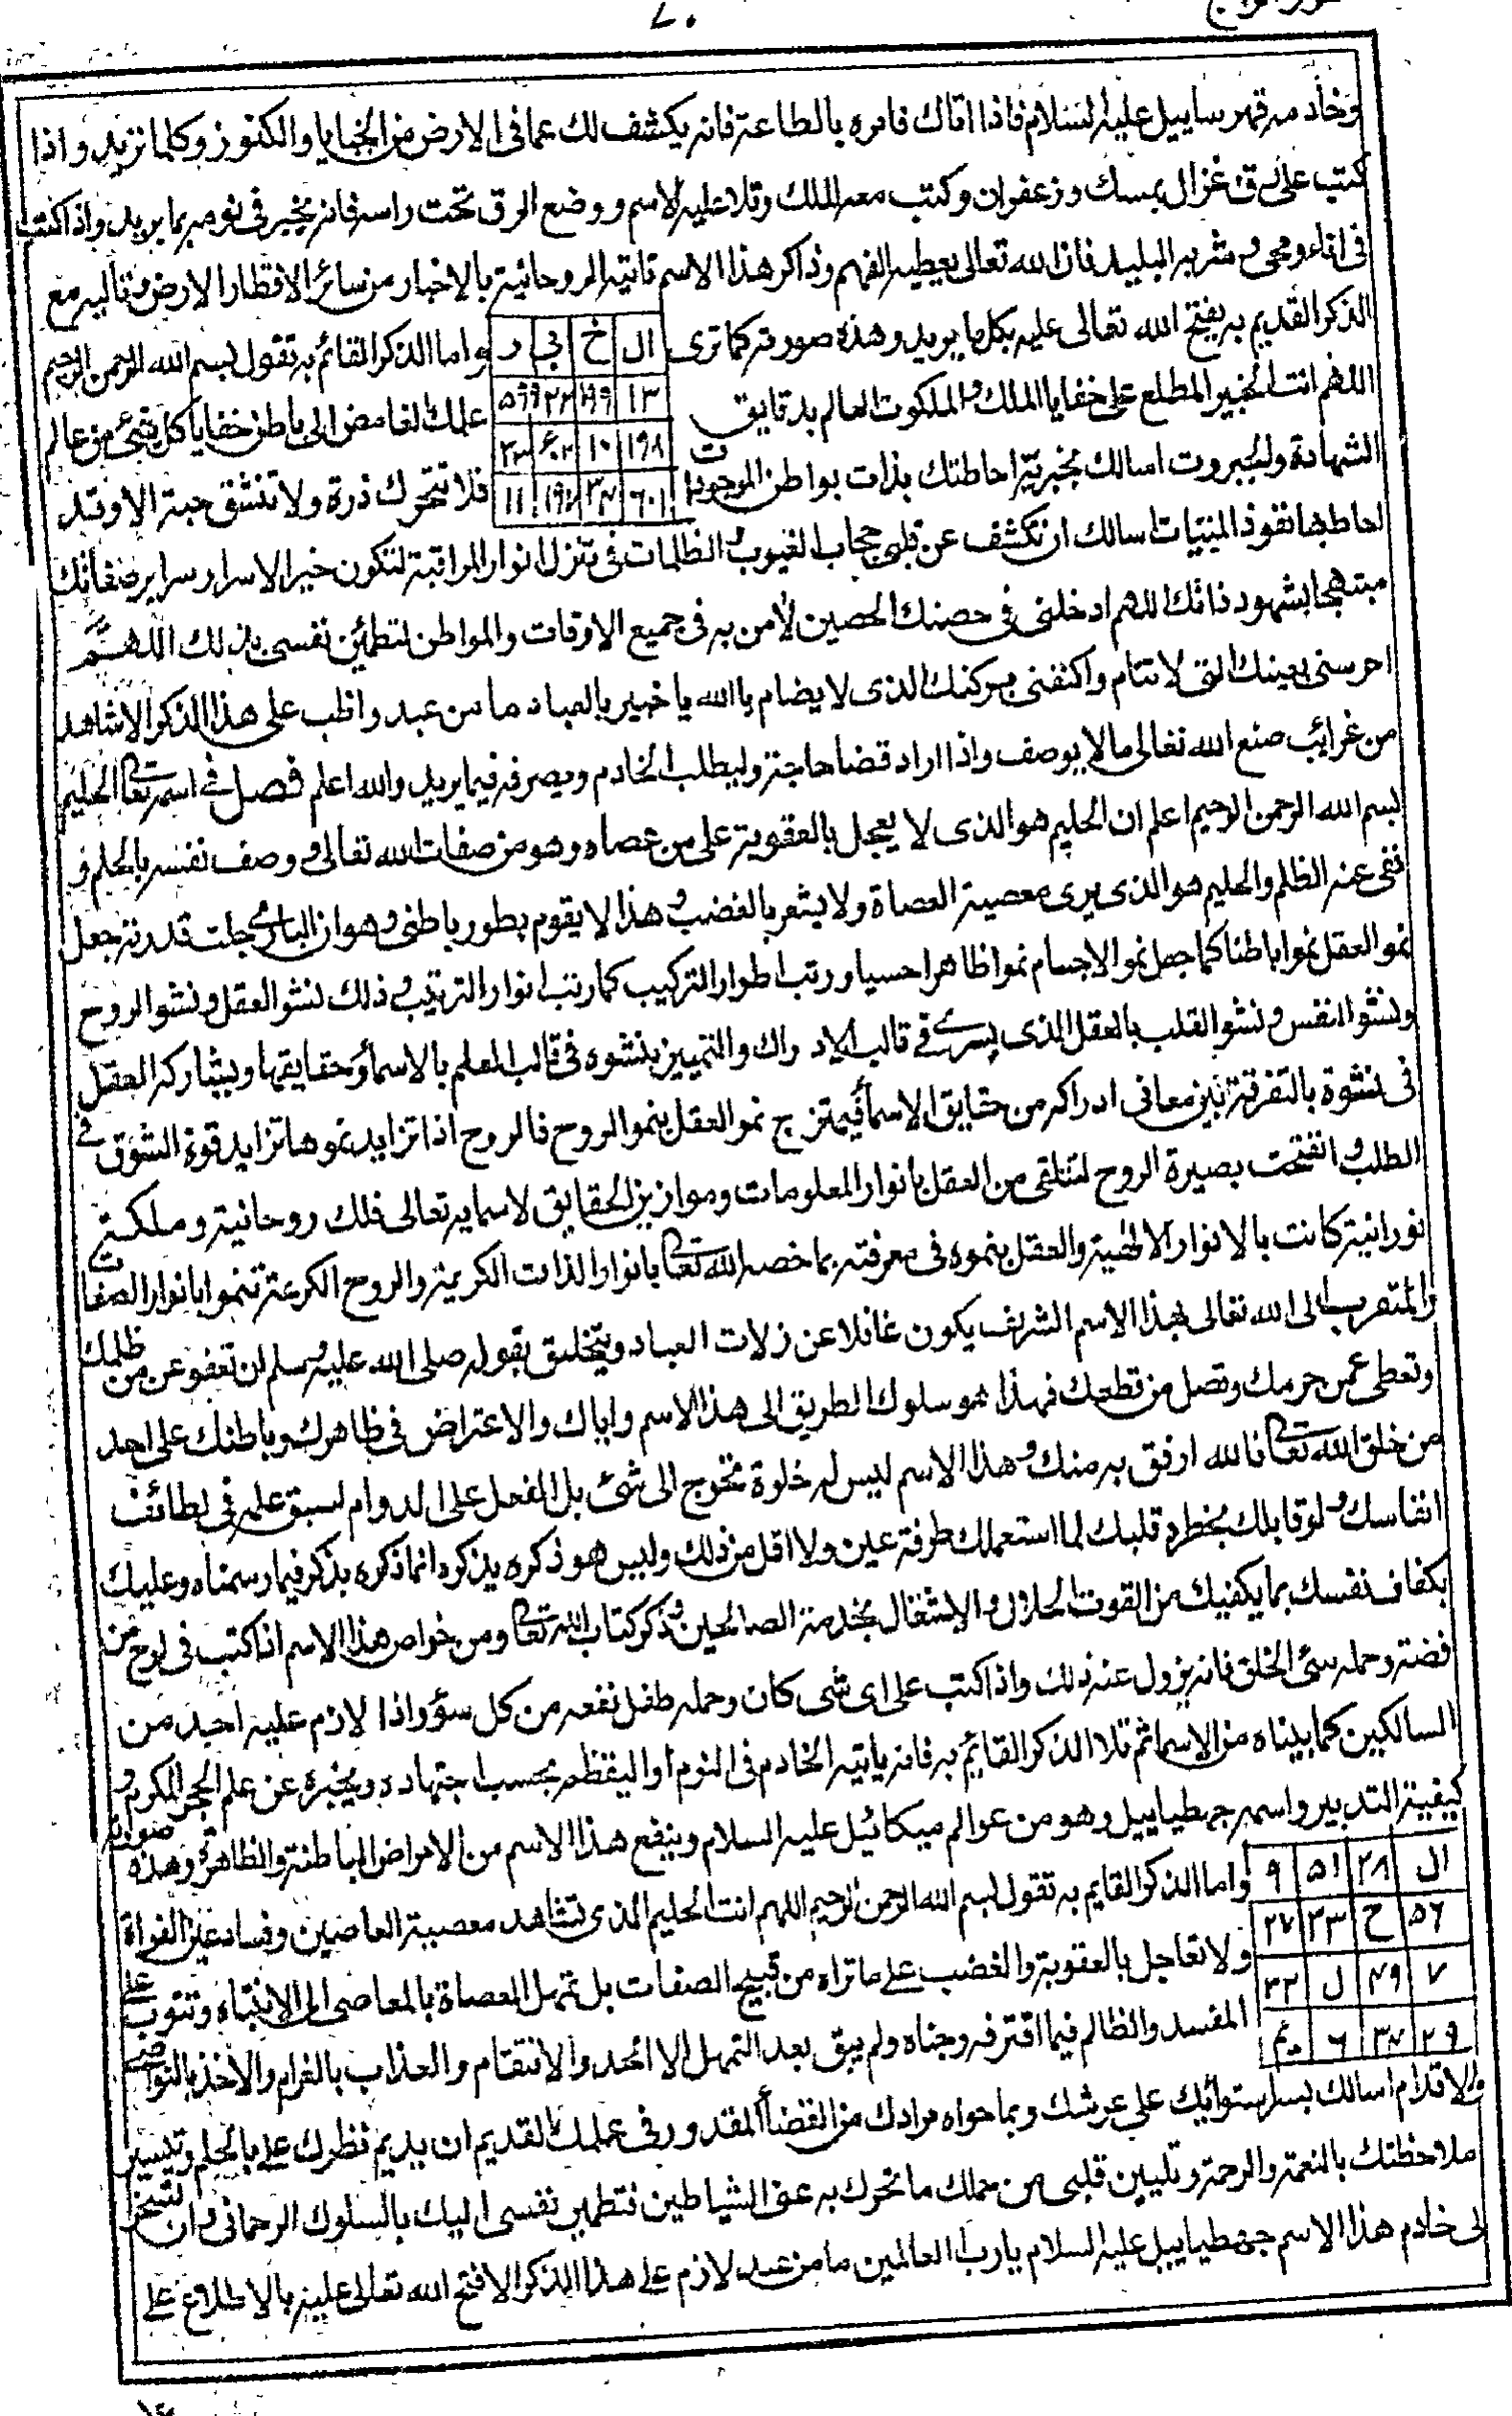 وخادمه قهرساييل عليه السلام فاذا اتاك فامره بالطاعة فانه يكشف لك عما فى الارض من الخبايا والكنوز وكلما تريد واذا
كتب على رق غزال بمسك وزعفران وكتب معه الملك وتلا عليه الاسم ووضع الرق تحت راسه فانه يخبر فى نومه بما يريد واذا كتب
فى اناء ومحى وشربه البليد فان الله تعالى يعطيه الفهم وذاكر هذا الاسم تاتيه الروحانية بالاخبار من سائر الاقطار الارض وتاليه مع
الذكر القديم به يفتح الله تعالى عليه بكل ما يريد وهذه صورته كما ترى
ال خ بى ر
١٣
١٩٨ ١٠
٦٠١ ١١
واما الذكر القائم به تقول بسم الله الرحمن الرحيم
اللهم انت الخبير المطلع على خفايا الملك والملكوت العالم بدقايق
علمك الغامض الى باطن خفايا كل شئ من عالم
الشهادة والجبروت اسالك بخبرية احاطتك بذات بواطن الموجودات
فلا تتحرك ذرة ولا تنشق حبة الا وقد
احاط بها نفوذ اسالك ان تكشف عن قلبى حجاب الغيوب والظلمات فى تنزل انوار المراقبة لتكون خبر الاسرار سراير صفاتك
مبتهجا بشهود ذاتك اللهم ادخلنى فى حصنك الحصين لأمن به فى جميع الاوقات والمواطن لتطمئن نفسى بذلك اللهم
احرسنى بعينك التى لا تنام واكنفنى بركنك الذى لا يضام يا الله يا خبير بالعباد ما من عبد واظب على هذا الذكر الا شاهد
من غرائب صنع الله تعالى ما لا يوصف واذا اراد قضا حاجة وليطلب الخادم ويصرفه فيما يريد والله اعلم فصل فى اسمه تعالى الحليم
بسم الله الرحمن الرحيم اعلم ان الحليم هو الذى لا يعجل بالعقوبة على من عصاه وهو من صفات الله تعالى ووصف نفسه بالحلم و
نفى عنه الظلم والحليم هو الذى يرى معصية العصاة ولا يشعر بالغضب وهذا لا يقوم بطور باطنى وهو ان البارى جلت قدرته جعل
نمو العقل نموا باطنا كما جعل نمو الاجسام نموا ظاهرا حسيا ورتب اطوار التركيب كما رتب انوار الترتيب وذلك نشو العقل ونشو الروح
ونشو النفس ونشو القلب بالعقل الذى يسرى فى قالب الادراك والتمييز بنشوه فى قالب المعلم بالاسماء وحقايقها ويشاركه العقل
فى نشوة بالتفرقة بين معانى ادراكه من حقايق الاسماء فيمتزج نمو العقل بنمو الروح فالروح اذا تزايد نموها تزايد قوة الشوق فى
الطلب وانفتحت بصيرة الروح لتتلقى من العقل بانوار المعلومات وموازين الحقايق لاسمايه تعالى فلك روحانية وملكة
نورانية كانت بالانوار الالهية والعقل بنموه فى معرفته بما خصه الله تعالى بانوار الذات الكريمة والروح الكريمة تنموا بانوار الصفات
والمتقرب الى الله تعالى بهذا الاسم الشريف يكون غافلا عن زلات العباد ويتخلق بقوله صلى الله عليه وسلم ان تعفو عن من ظلمك
وتعطى عمن حرمك وتصل من قطعك فهذا هو سلوك الطريق الى هذا الاسم واياك والاعتراض فى ظاهرك وباطنك على احد
من خلق الله تعالى فالله ارفق به منك وهذا الاسم ليس له خلوة تخرج الى شئ بل الفعل على الدوام لسبق علمه فى لطائف
انفاسك ولو قابلك بخطره قلبك لما استعملك طرفة عين ولا اقل من ذلك وليس هو ذكره يذكره انما ذكره بذكر فيما رسمناه وعليك
بكفاف نفسك بما يكفيك من القوت الحلال والاشغال بخدمة الصالحين وذكر كتاب الله تعالى ومن خواص هذا الاسم اذا كتب فى لوح من
فضة وحمله سئ الخلق فانه يزول عنه ذلك واذا كتب على اى شى كان وحمله طفل نفعه من كل سؤ واذا لازم عليه احد من
السالكين كما بيناه من الاسما ثم تلا الذكر القايم به فانه ياتيه الخادم فى النوم او اليقظه بحسب اجتهاده ويخبره عن علم الحجر المكرم و
كيفية التدبير واسمه جهطياييل وهو من عوالم ميكائيل عليه السلام وينفع هذا الاسم من الامراض الباطنة والظاهرة وهذه صورته
ال ٢٨ ٥١ ٩
٥٦ ح ٢٣ ٢٧
٧ ٤٩ ل ٣٢
٢٩ ٣٤ ٦ يم
واما الذكر القايم به تقول بسم الله الرحمن الرحيم اللهم انت الحليم الذى تشاهد معصية العاصين وفساد
ولا تعاجل بالعقوبة والغضب على ما تراه من قبيح الصفات بل تمهل العصاة بالمعاصى الى الانتباه وتتوب على
المفسد والظالم فيما اقترفه وجناه ولم يبق بعد التمهل الا الحد والانتقام والعذاب بالغرام والاخذ بالنواصى
والاقدام اسالك بسر استوائك على عرشك وبما حواه مرادك من القضاء المقدور فى عملك القديم ان يديم نظرك على بالحلم وتيسير
ملاحظتك بالنعمة والرحمة وتليين قلبى من حملك ما تحرك به عن الشياطين فتطمين نفسى اليك بالسلوك الرحمانى وان تسخر
لى خادم هذا الاسم جهطياييل عليه السلام يا رب العالمين ما من عبد لازم على هذا الذكر الا فتح الله تعالى عليه بالاطلاع على